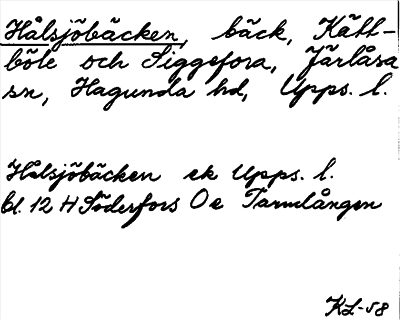 Hålsjöbäcken, bäck, Kätt-
böle och Siggefora, Järlåsa
sn, Hagunda hd, Upps. l.
Hålsjöbäcken ek Upps. l.
bl. 12 H Söderfors Oe Tamnlången
KL-58